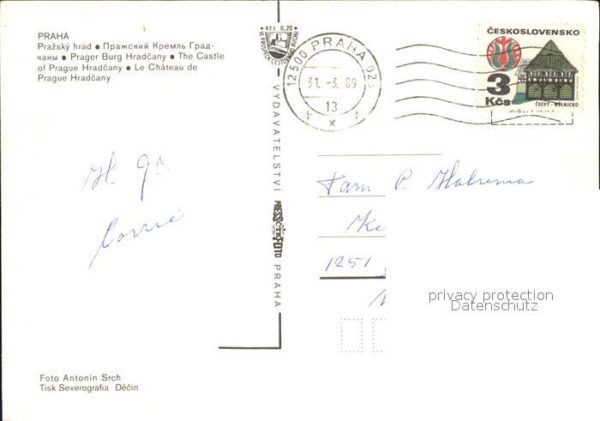 PRAHA
Pražský hrad ● Пражский Кремль Град-
чаны ● Prager Burg Hradčany ● The Castle
of Prague Hradčany ● Le Château de
Prague Hradčany
Kčs 0,20
12500 PRAHA 025
31. -3. 89
13
x
ČESKOSLOVENSKO
3
Kčs
ČECHY - MĚLNICKO
VYDAVATELSTVÍ PRESSFOTO PRAHA
H. Gr.
Corrie
Fam P. Halsema
Ke
1251
privacy protection
Datenschutz
Foto Antonín Srch
Tisk Severografia Děčín